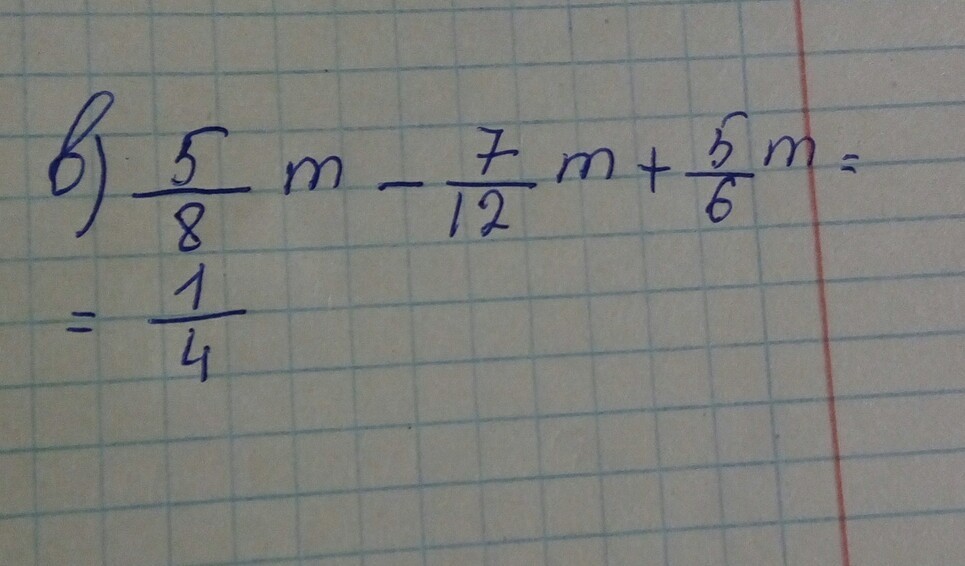 в) 5/8 m - 7/12 m + 5/6 m =
= 1/4